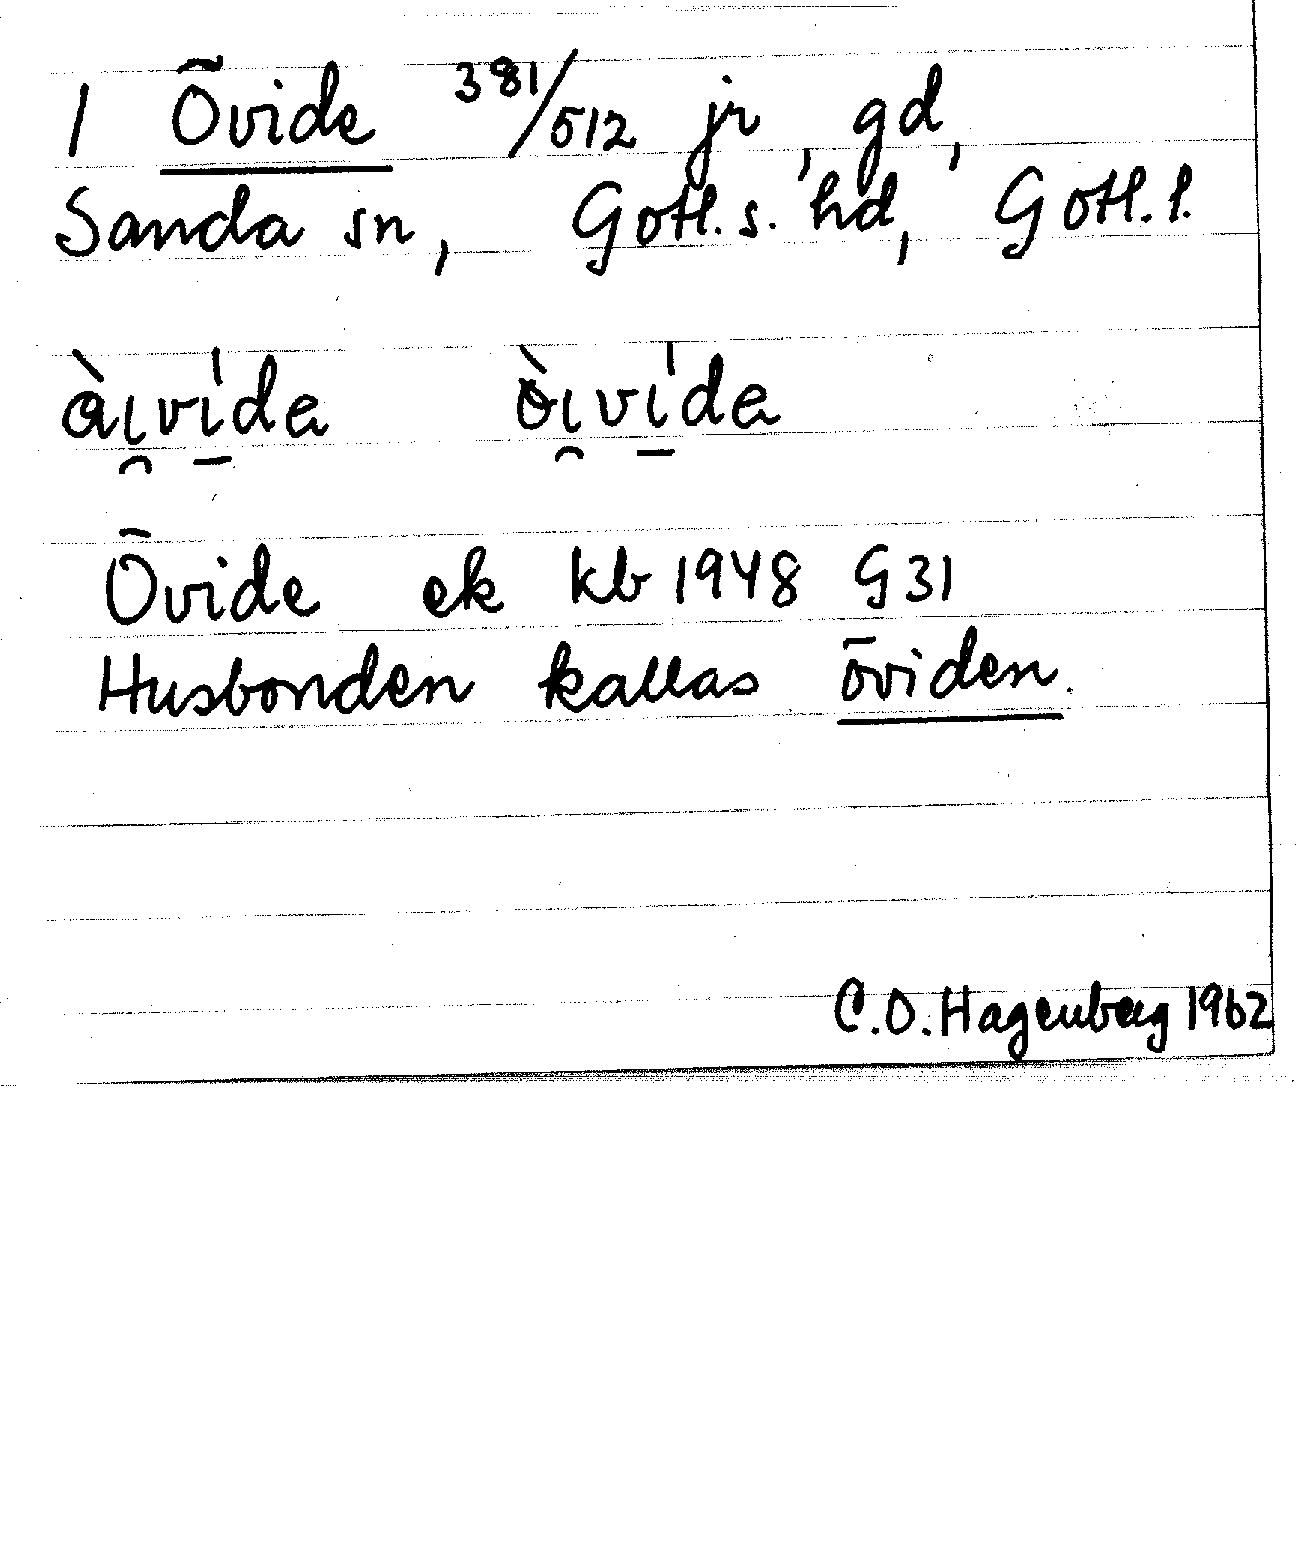 1 Övide 381/512 jr, gd,
Sanda sn, Gotl. s. hd, Gotl. l.
Övide ek kb 1948 G31
Husbonden kallas öviden.
C.O. Hagenberg 1962